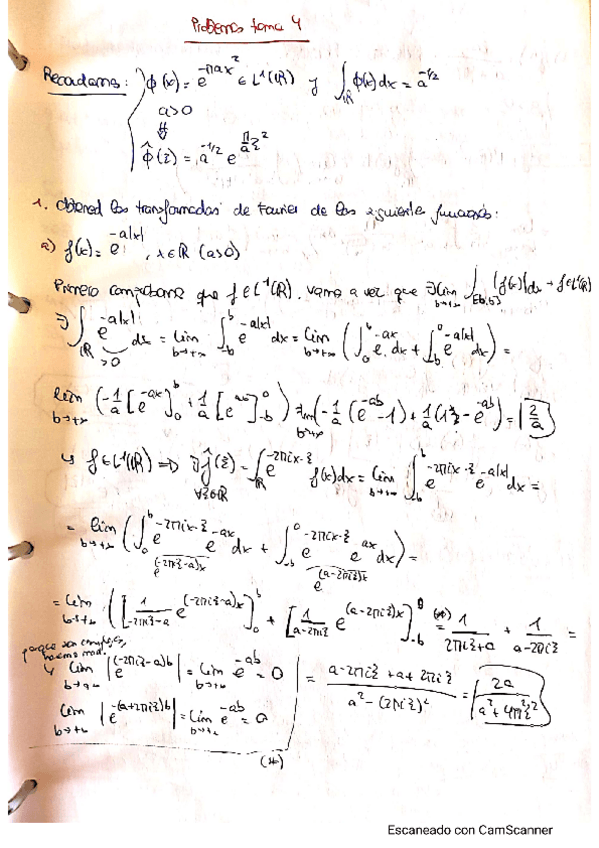 Problemas tema 4
Recordamos: ϕ(x) = e^{-πax²} ∈ L¹(ℝ) y ∫_ℝ ϕ(x)dx = a^{-1/2}
a>0
⇓
ϕ̂(ξ) = a^{-1/2} e^{π/a ξ²}
1. Obtened las transformadas de Fourier de las siguientes funciones:
a) f(x) = e^{-a|x|}, x∈ℝ (a>0)
Primero comprobamos que f∈L¹(ℝ). Vamos a ver que ∃ lim_{b→+∞} ∫_{[-b,b]} |f(x)|dx → f∈L¹(ℝ)
∃ ∫_ℝ e^{-a|x|} dx = lim_{b→+∞} ∫_{-b}^{b} e^{-a|x|} dx = lim_{b→+∞} (∫_0^b e^{-ax} dx + ∫_{-b}^0 e^{-a|x|} dx) =
>0
lim_{b→+∞} (-1/a [e^{-ax}]_0^b + 1/a [e^{ax}]_{-b}^0) = lim_{b→+∞} (-1/a (e^{-ab} - 1) + 1/a (1 - e^{-ab})) = 2/a
↳ f∈L¹(ℝ) ⇒ ∃ f̂(ξ) = ∫_ℝ e^{-2πix·ξ} f(x)dx = lim_{b→+∞} ∫_{-b}^b e^{-2πix·ξ} e^{-a|x|} dx =
∀ξ∈ℝ
= lim_{b→+∞} (∫_0^b e^{-2πix·ξ} e^{-ax} dx + ∫_{-b}^0 e^{-2πix·ξ} e^{ax} dx) =
e^{(-2πiξ-a)x} e^{(a-2πiξ)x}
= lim_{b→+∞} ([1/(-2πiξ-a) e^{(-2πiξ-a)x}]_0^b + [1/(a-2πiξ) e^{(a-2πiξ)x}]_{-b}^0 (*) = 1/(2πiξ+a) + 1/(a-2πiξ) =
porque son complejos, hacemos mod.
↳ lim_{b→+∞} |e^{(-2πiξ-a)b}| = lim_{b→+∞} e^{-ab} = 0
= (a-2πiξ+a+2πiξ)/(a²-(2πiξ)²) = 2a/(a²+4π²ξ²)
lim_{b→+∞} |e^{-(a+2πiξ)b}| = lim_{b→+∞} e^{-ab} = 0
(*)
Escaneado con CamScanner